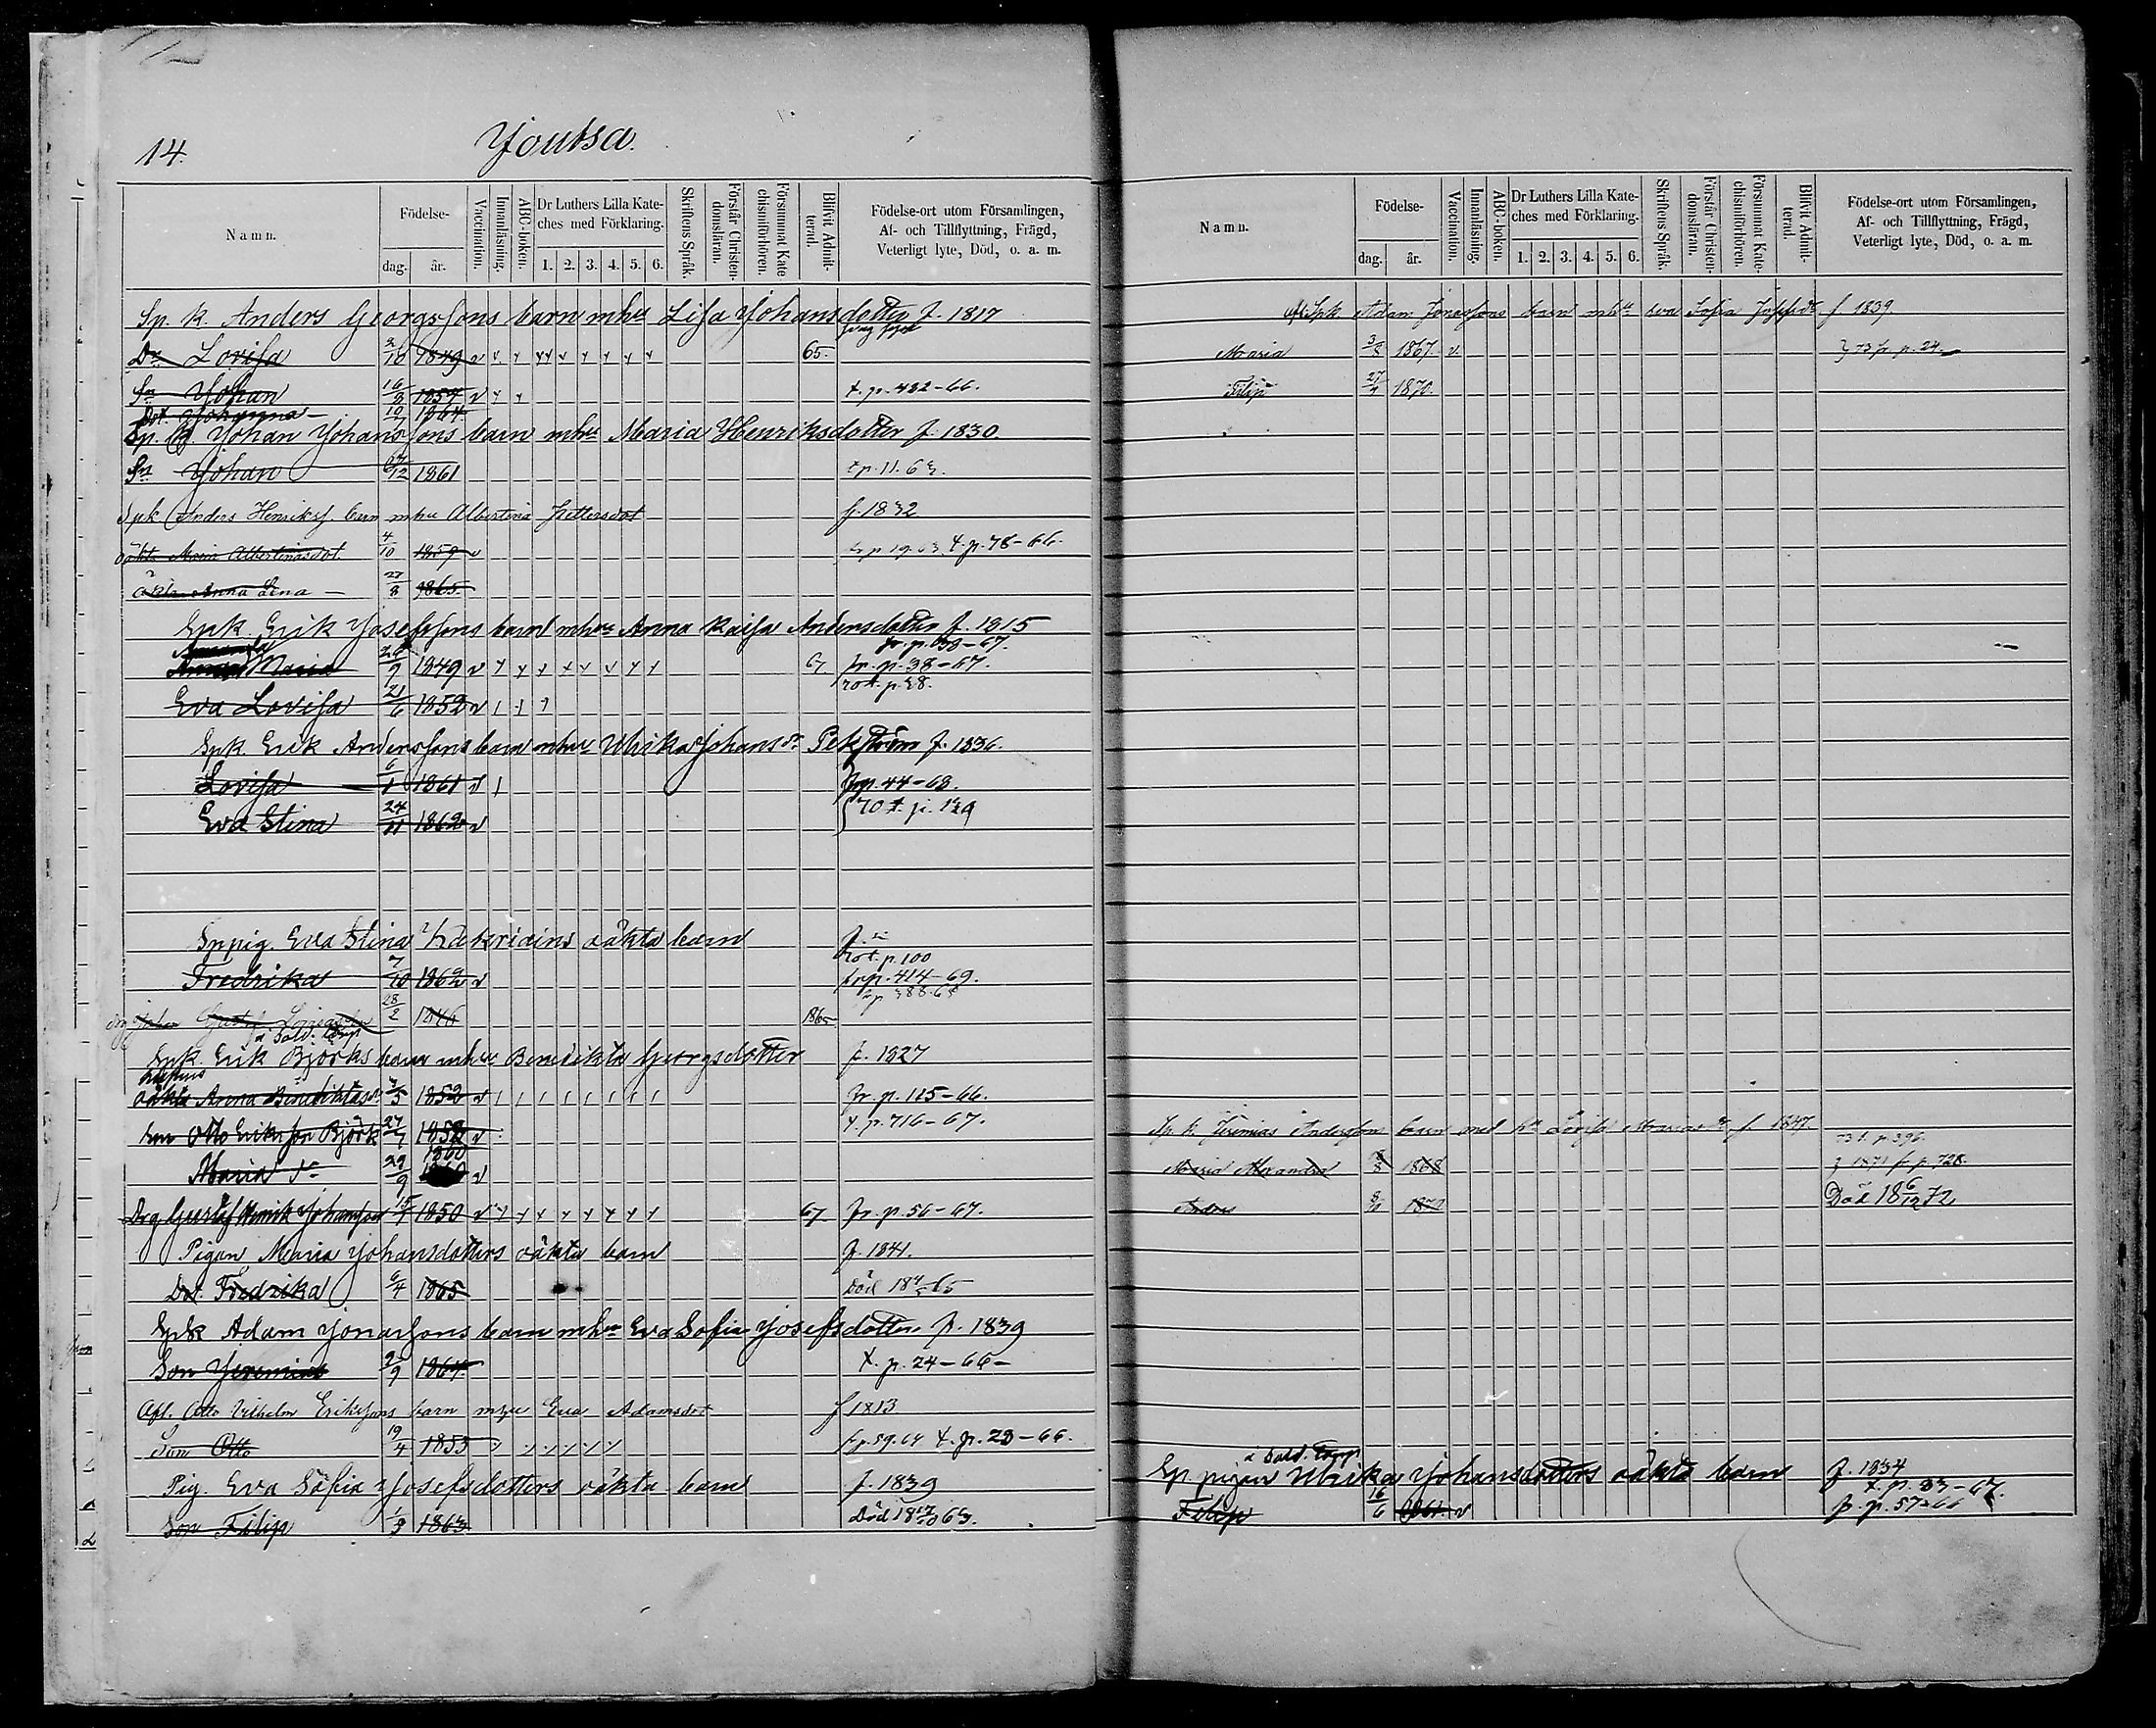 14.
Joutsa.
Namn.
Födelse-
dag.
år.
Vaccination.
Innanläsning.
ABC-boken.
Dr Luthers Lilla Kate-
ches med Förklaring.
1. 2. 3. 4. 5. 6.
Skriftens Språk.
Förstår Christen-
domsläran.
Försummat Kate
chismiförhören.
Blifvit Admit-
terad.
Födelse-ort utom Församlingen,
Af- och Tillflyttning, Frägd,
Veterligt lyte, Död, o. a. m.
Sp. k. Anders Georgssons barn mhu Lisa Johansdotter f. 1817
Dr Lovisa 2/10 1849 v 65.
Sn Johan 16/8 1857 v t. p. 432-66.
Dot. Johanna 10/7 1864
Sp. k Johan Johanssons barn mhu Maria Henriksdotter f. 1830.
Sn Johan 27/12 1861 t p. 11. 63.
Spk Anders Henrikss. barn mhu Albertina Pettersdot f. 1832
oäkta Maria Albertinasdot 4/10 1859 v fr p 19. 63 t. p. 78-66.
äkta Anna Lina 27/8 1865
Spk. Erik Josefssons barn mhu Anna Kaisa Andersdotter f. 1815
fr. p. 38-67.
Maria 1849 v 67. fr. p. 38-67.
70 t. p. 38.
Eva Lovisa 21/6 1852 v
Spk. Erik Anderssons barn mhu Ulrika Johansdr Pekström f. 1836.
Lovisa 6/1 1861 v fr p. 44-68.
Eva Stina 24/11 1862 v 70 t. p. 129
Sppig. Eva Stina oäkta barn f.
70 t. p. 100
Fredrika 7/10 1862 v fr p. 414-69.
Gustaf 28/2 1846 1865
a Sold. torp
Spk. Erik Björks barn mhu Benedikta Georgsdotter f. 1827
oäkta Anna Benediktasdr 3/5 1852 v fr. p. 115-66.
Son Otto Eriksson Björk 27/7 1858 v t. p. 716-67.
1860
Maria 29/9 v
Drg Gustaf Henrik Johansson 15/7 1850 v 67. fr. p. 56-67.
Pigan Maria Johansdotters oäkta barn f. 1841.
Dot Fredrika 6/4 1865 Död 65
Spk Adam Jonassons barn mhu Eva Sofia Josefsdotter f. 1839
Son Jeremias 2/9 1864 t. p. 24-66-
Afl. Otto Vilhelm Erikssons barn mhu Eva Adamsdot f 1813
Son Otto 19/4 1853 fr p. 59. 64 t. p. 23-66.
Pig. Eva Sofia Josefsdotters oäkta barn f. 1839
Son Filip 1/3 1863 Död 63.
Namn.
Födelse-
dag.
år.
Vaccination.
Innanläsning.
ABC-boken.
Dr Luthers Lilla Kate-
ches med Förklaring.
1. 2. 3. 4. 5. 6.
Skriftens Språk.
Förstår Christen-
domsläran.
Försummat Kate-
chismiförhören.
Blifvit Admit-
terad.
Födelse-ort utom Församlingen,
Af- och Tillflyttning, Frägd,
Veterligt lyte, Död, o. a. m.
Spk Adam Jonassons barn mhu Eva Sofia Josefsdr f 1839.
Maria 3/8 1867. v. 73 fr p. 24.
Filip 1870.
Sp. k. Jeremias Anderssons barn med hu Lovisa f 1847.
73 t. p. 396.
Maria Alexandra 1868 1871 fr p. 728.
Anders 1872 Död 18 6/12 72
a Sold. torp
Sp. pigan Ulrika Johansdotters oäkta barn f. 1834
t. p. 33-67.
Filip 16/6 1861. v fr. p. 57-66